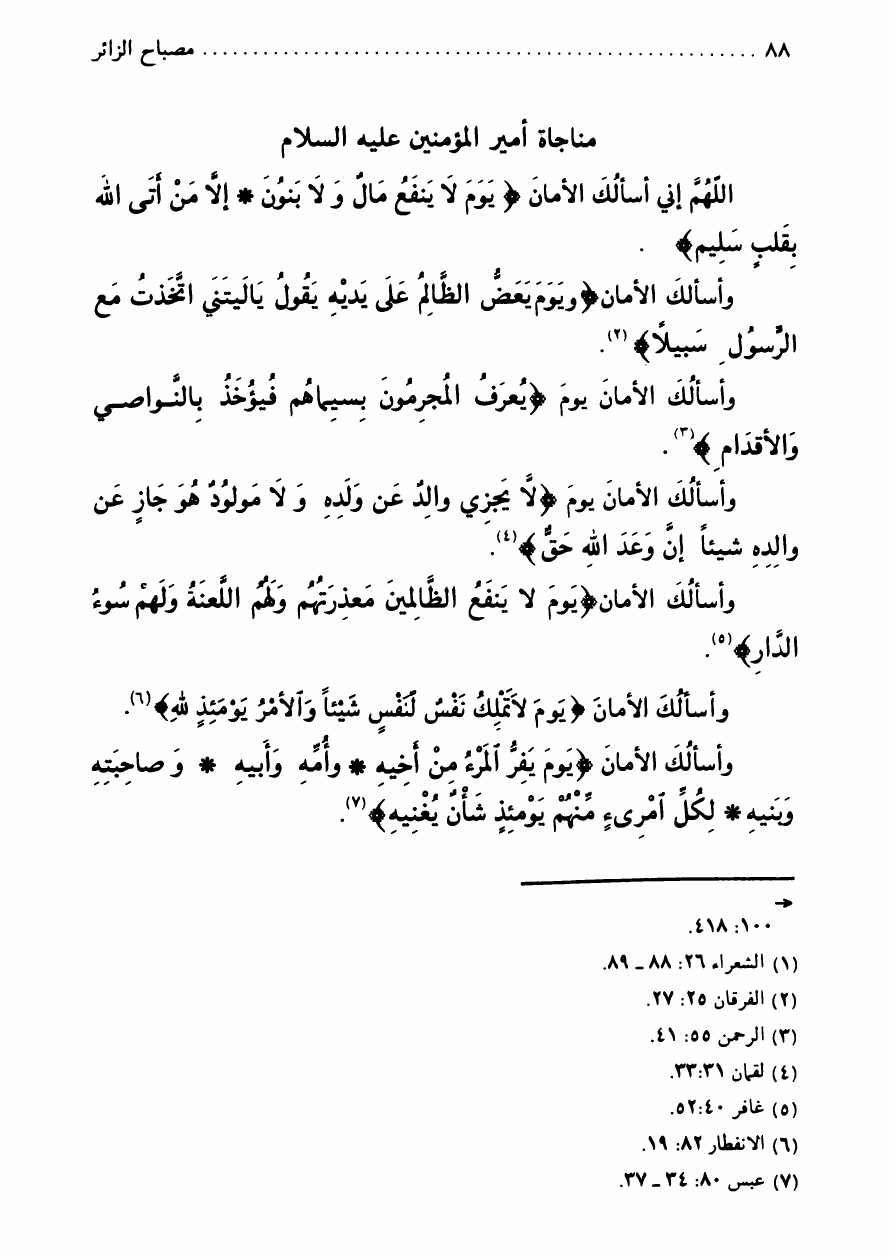 ٨٨ ........................................................ مصباح الزائر
مناجاة أمير المؤمنين عليه السلام
اللّهُمَّ إني أسألُكَ الأمانَ ﴿ يَوَمَ لَا يَنفَعُ مَالٌ وَ لَا بَنوُنَ * إلَّا مَنْ أَتَى اللهَ
بِقَلبٍ سَلِيم﴾ .
وأسألكَ الأمان﴿ويَوَمَ يَعَضُّ الظَّالِمُ عَلَى يَديْهِ يَقُولُ يَالَيتَنَي اتَّخَذتُ مَع
الرَّسوُلِ سَبيلًا﴾(٢).
وأسألُكَ الأمانَ يومَ ﴿يُعرَفُ المُجرِمُونَ بِسيِماهُم فُيؤُخَذُ بِالنَّـواصـي
وَالأقدَامِ﴾(٣).
وأسألُكَ الأمانَ يومَ ﴿لَّا يَجزِي والدٌ عَن وَلَدِهِ وَ لَا مَولوُدٌ هُوَ جَازٍ عَن
والِدِهِ شيئاً إنَّ وَعَدَ اللهِ حَقٌّ﴾(٤).
وأسألُكَ الأمان﴿يَومَ لا يَنفَعُ الظَّالِمينَ مَعذِرَتُهُم وَلَهُمُ اللَّعنَةُ وَلَهمْ سُوءُ
الدَّارِ﴾(٥).
وأسألُكَ الأمانَ ﴿يَومَ لاَتَمْلِكُ نَفْسٌ لِّنَفْسٍ شَيْئاً وَٱلأمْرُ يَوْمَئِذٍ للهِ﴾(٦).
وأسألُكَ الأمانَ ﴿يَومَ يَفِرُّ ٱلمَرْءُ مِنْ أَخِيهِ * وأُمِّهِ وَأَبيهِ * وَ صاحِبَتِهِ
وَبَنيهِ * لِكُلِّ ٱمْرِىءٍ مِّنْهُمْ يَوْمئِذٍ شَأْنٌ يُغْنِيهِ﴾(٧).
→
١٠٠: ٤١٨.
(١) الشعراء ٢٦: ٨٨ ـ ٨٩.
(٢) الفرقان ٢٥: ٢٧.
(٣) الرحمن ٥٥: ٤١.
(٤) لقمان ٣٣:٣١.
(٥) غافر ٥٢:٤٠.
(٦) الانفطار ٨٢: ١٩.
(٧) عبس ٨٠: ٣٤ ـ ٣٧.